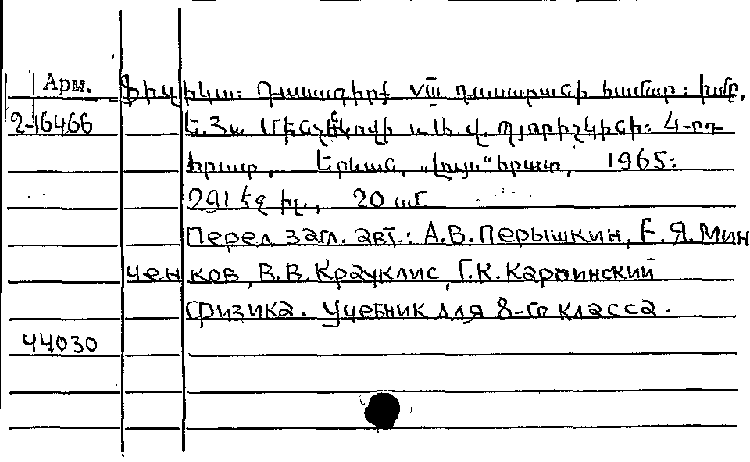 Арм. Ֆիզիկա: Դասագիրք VIII դասարանի համար: խմբ.
2-16466 Ե.Յա Մինչենկովի և Ա. Վ. Պյորիշկինի: 4-րդ
հրատ., Երևան, „Լույս“ հրատ, 1965:
291 էջ իլ., 20 սմ
Перед загл. авт.: А.В. Перышкин, Е.Я. Мин
ченков, В.В. Крауклис, Г.К. Карпинский
Физика. Учебник для 8-го класса.
44030